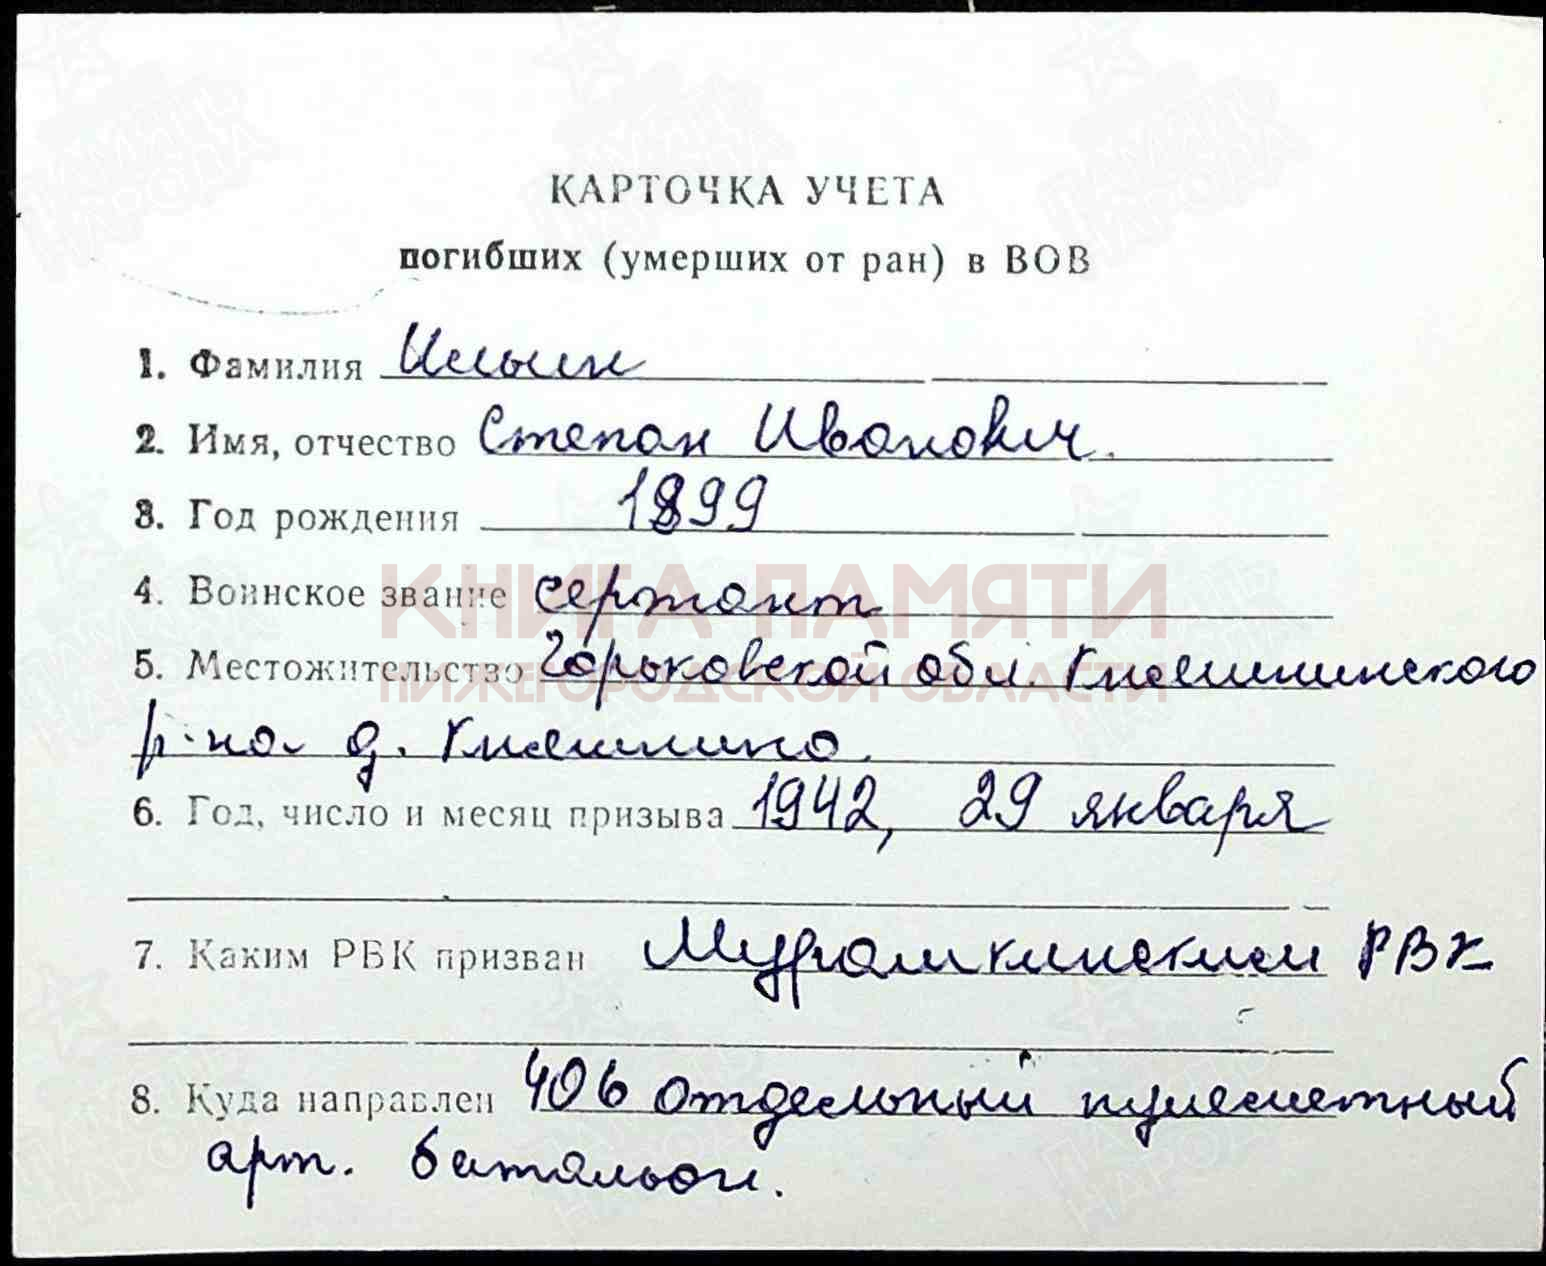 КАРТОЧКА УЧЕТА
погибших (умерших от ран) в ВОВ
1. Фамилия Ильин
2. Имя, отчество Степан Иванович.
3. Год рождения 1899
4. Воинское звание сержант
КНИГА ПАМЯТИ
5. Местожительство Горьковской обл. Княгининского
НИЖЕГОРОДСКОЙ ОБЛАСТИ
р-на д. Княгинино.
6. Год, число и месяц призыва 1942, 29 января
7. Каким РВК призван Мурашкинским РВК
8. Куда направлен 406 отдельный пулеметный
арт. батальон.